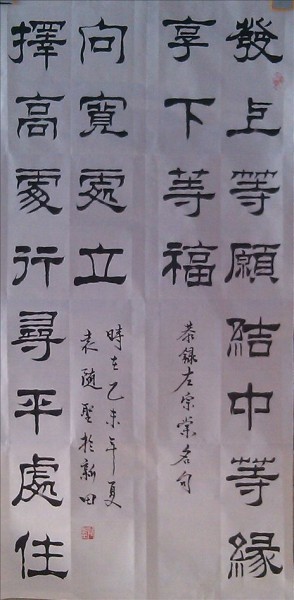 發上等願結中等緣
享下等福
恭錄左宗棠名句
擇高處行尋平處住
向寬處立
時在乙未年夏
袁隨聖於新田